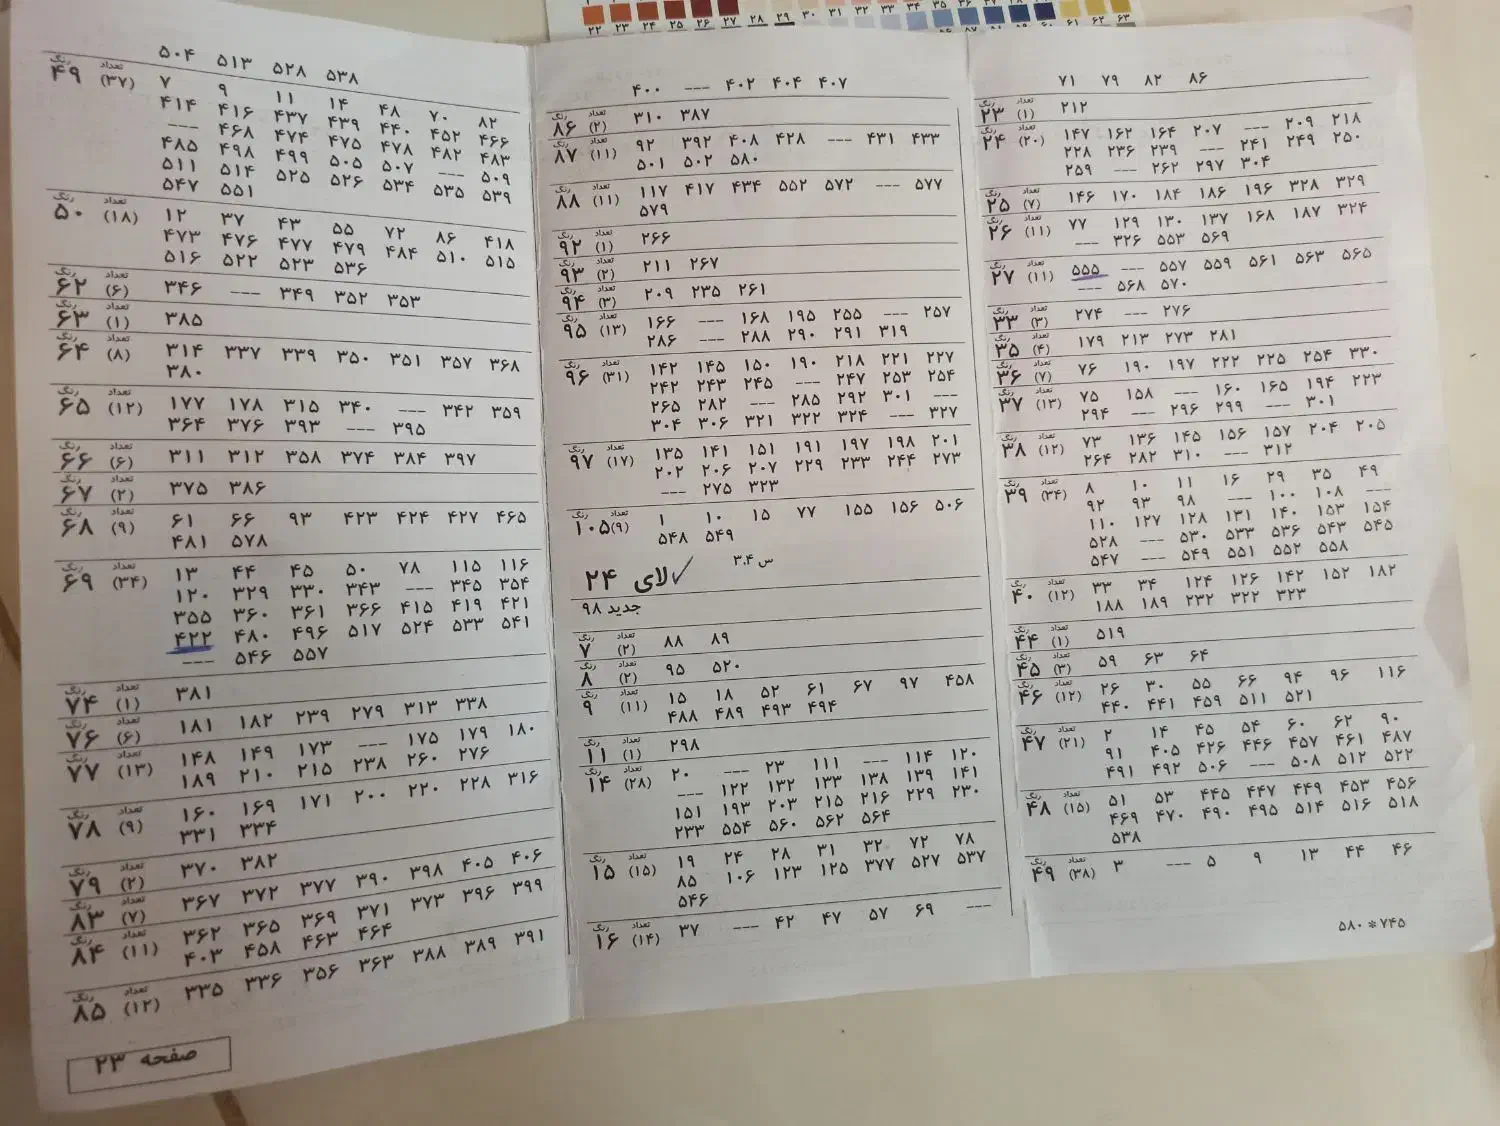 ۲۲ ۲۳ ۲۴ ۲۵ ۲۶ ۲۷ ۲۸ ۲۹ ۳۰ ۳۱ ۳۲ ۳۳ ۳۴ ۳۵ ۳۶
۶۱ ۶۲ ۶۳
۵۰۴ ۵۱۳ ۵۲۸ ۵۳۸
رنگ ۴۹ تعداد (۳۷) ۷ ۹ ۱۱ ۱۴ ۴۸ ۷۰ ۸۲
۴۱۴ ۴۱۶ ۴۳۷ ۴۳۹ ۴۴۰ ۴۵۲ ۴۶۶
--- ۴۶۸ ۴۷۴ ۴۷۵ ۴۷۸ ۴۸۲ ۴۸۳
۴۸۵ ۴۹۸ ۴۹۹ ۵۰۵ ۵۰۷ --- ۵۰۹
۵۱۱ ۵۱۴ ۵۲۵ ۵۲۶ ۵۳۴ ۵۳۵ ۵۳۹
۵۴۷ ۵۵۱
رنگ ۵۰ تعداد (۱۸) ۱۲ ۳۷ ۴۳ ۵۵ ۷۲ ۸۶ ۴۱۸
۴۷۳ ۴۷۶ ۴۷۷ ۴۷۹ ۴۸۴ ۵۱۰ ۵۱۵
۵۱۶ ۵۲۲ ۵۲۳ ۵۳۶
رنگ ۶۲ تعداد (۶) ۳۴۶ --- ۳۴۹ ۳۵۲ ۳۵۳
رنگ ۶۳ تعداد (۱) ۳۸۵
رنگ ۶۴ تعداد (۸) ۳۱۴ ۳۳۷ ۳۳۹ ۳۵۰ ۳۵۱ ۳۵۷ ۳۶۸
۳۸۰
رنگ ۶۵ تعداد (۱۲) ۱۷۷ ۱۷۸ ۳۱۵ ۳۴۰ --- ۳۴۲ ۳۵۹
۳۶۴ ۳۷۶ ۳۹۳ --- ۳۹۵
رنگ ۶۶ تعداد (۶) ۳۱۱ ۳۱۲ ۳۵۸ ۳۷۴ ۳۸۴ ۳۹۷
رنگ ۶۷ تعداد (۲) ۳۷۵ ۳۸۶
رنگ ۶۸ تعداد (۹) ۶۱ ۶۶ ۹۳ ۴۲۳ ۴۲۴ ۴۲۷ ۴۶۵
۴۸۱ ۵۷۸
رنگ ۶۹ تعداد (۳۴) ۱۳ ۴۴ ۴۵ ۵۰ ۷۸ ۱۱۵ ۱۱۶
۱۲۰ ۳۲۹ ۳۳۰ ۳۴۳ --- ۳۴۵ ۳۵۴
۳۵۵ ۳۶۰ ۳۶۱ ۳۶۶ ۴۱۵ ۴۱۹ ۴۲۱
۴۲۲ ۴۸۰ ۴۹۶ ۵۱۷ ۵۲۴ ۵۳۳ ۵۴۱
--- ۵۴۶ ۵۵۷
رنگ ۷۴ تعداد (۱) ۳۸۱
رنگ ۷۶ تعداد (۶) ۱۸۱ ۱۸۲ ۲۳۹ ۲۷۹ ۳۱۳ ۳۳۸
رنگ ۷۷ تعداد (۱۳) ۱۴۸ ۱۴۹ ۱۷۳ --- ۱۷۵ ۱۷۹ ۱۸۰
۱۸۹ ۲۱۰ ۲۱۵ ۲۳۸ ۲۶۰ ۲۷۶
رنگ ۷۸ تعداد (۹) ۱۶۰ ۱۶۹ ۱۷۱ ۲۰۰ ۲۲۰ ۲۲۸ ۳۱۶
۳۳۱ ۳۳۴
رنگ ۷۹ تعداد (۲) ۳۷۰ ۳۸۲
رنگ ۸۳ تعداد (۷) ۳۶۷ ۳۷۲ ۳۷۷ ۳۹۰ ۳۹۸ ۴۰۵ ۴۰۶
رنگ ۸۴ تعداد (۱۱) ۳۶۲ ۳۶۵ ۳۶۹ ۳۷۱ ۳۷۳ ۳۹۶ ۳۹۹
۴۰۳ ۴۵۸ ۴۶۳ ۴۶۴
رنگ ۸۵ تعداد (۱۲) ۳۳۵ ۳۳۶ ۳۵۶ ۳۶۳ ۳۸۸ ۳۸۹ ۳۹۱
صفحه ۲۳
۴۰۰ --- ۴۰۲ ۴۰۴ ۴۰۷
رنگ ۸۶ تعداد (۲) ۳۱۰ ۳۸۷
رنگ ۸۷ تعداد (۱۱) ۹۲ ۳۹۲ ۴۰۸ ۴۲۸ --- ۴۳۱ ۴۳۳
۵۰۱ ۵۰۲ ۵۸۰
رنگ ۸۸ تعداد (۱۱) ۱۱۷ ۴۱۷ ۴۳۴ ۵۵۲ ۵۷۲ --- ۵۷۷
۵۷۹
رنگ ۹۲ تعداد (۱) ۲۶۶
رنگ ۹۳ تعداد (۲) ۲۱۱ ۲۶۷
رنگ ۹۴ تعداد (۳) ۲۰۹ ۲۳۵ ۲۶۱
رنگ ۹۵ تعداد (۱۳) ۱۶۶ --- ۱۶۸ ۱۹۵ ۲۵۵ --- ۲۵۷
۲۸۶ --- ۲۸۸ ۲۹۰ ۲۹۱ ۳۱۹
رنگ ۹۶ تعداد (۳۱) ۱۴۲ ۱۴۵ ۱۵۰ ۱۹۰ ۲۱۸ ۲۲۱ ۲۲۷
۲۴۲ ۲۴۳ ۲۴۵ --- ۲۴۷ ۲۵۳ ۲۵۴
۲۶۵ ۲۸۲ --- ۲۸۵ ۲۹۲ ۳۰۱ ---
۳۰۴ ۳۰۶ ۳۲۱ ۳۲۲ ۳۲۴ --- ۳۲۷
رنگ ۹۷ تعداد (۱۷) ۱۳۵ ۱۴۱ ۱۵۱ ۱۹۱ ۱۹۷ ۱۹۸ ۲۰۱
۲۰۲ ۲۰۶ ۲۰۷ ۲۲۹ ۲۳۳ ۲۴۴ ۲۷۳
--- ۲۷۵ ۳۲۳
رنگ ۱۰۵ تعداد (۹) ۱ ۱۰ ۱۵ ۷۷ ۱۵۵ ۱۵۶ ۵۰۶
۵۴۸ ۵۴۹
لای ۲۴ ✓ س ۳.۴
جدید ۹۸
رنگ ۷ تعداد (۲) ۸۸ ۸۹
رنگ ۸ تعداد (۲) ۹۵ ۵۲۰
رنگ ۹ تعداد (۱۱) ۱۵ ۱۸ ۵۲ ۶۱ ۶۷ ۹۷ ۴۵۸
۴۸۸ ۴۸۹ ۴۹۳ ۴۹۴
رنگ ۱۱ تعداد (۱) ۲۹۸
رنگ ۱۴ تعداد (۲۸) ۲۰ --- ۲۳ ۱۱۱ --- ۱۱۴ ۱۲۰
--- ۱۲۲ ۱۳۲ ۱۳۳ ۱۳۸ ۱۳۹ ۱۴۱
۱۵۱ ۱۹۳ ۲۰۳ ۲۱۵ ۲۱۶ ۲۲۹ ۲۳۰
۲۳۳ ۵۵۴ ۵۶۰ ۵۶۲ ۵۶۴
رنگ ۱۵ تعداد (۱۵) ۱۹ ۲۴ ۲۸ ۳۱ ۳۲ ۷۲ ۷۸
۸۵ ۱۰۶ ۱۲۳ ۱۲۵ ۳۷۷ ۵۲۷ ۵۳۷
۵۴۶
رنگ ۱۶ تعداد (۱۴) ۳۷ --- ۴۲ ۴۷ ۵۷ ۶۹ ---
۷۱ ۷۹ ۸۲ ۸۶
رنگ ۲۳ تعداد (۱) ۲۱۲
رنگ ۲۴ تعداد (۲۰) ۱۴۷ ۱۶۲ ۱۶۴ ۲۰۷ --- ۲۰۹ ۲۱۸
۲۲۸ ۲۳۶ ۲۳۹ --- ۲۴۱ ۲۴۹ ۲۵۰
۲۵۹ --- ۲۶۲ ۲۹۷ ۳۰۴
رنگ ۲۵ تعداد (۷) ۱۴۶ ۱۷۰ ۱۸۴ ۱۸۶ ۱۹۶ ۳۲۸ ۳۲۹
رنگ ۲۶ تعداد (۱۱) ۷۷ ۱۲۹ ۱۳۰ ۱۳۷ ۱۶۸ ۱۸۷ ۳۲۴
--- ۳۲۶ ۵۵۳ ۵۶۹
رنگ ۲۷ تعداد (۱۱) ۵۵۵ --- ۵۵۷ ۵۵۹ ۵۶۱ ۵۶۳ ۵۶۵
--- ۵۶۸ ۵۷۰
رنگ ۳۳ تعداد (۳) ۲۷۴ --- ۲۷۶
رنگ ۳۵ تعداد (۴) ۱۷۹ ۲۱۳ ۲۷۳ ۲۸۱
رنگ ۳۶ تعداد (۷) ۷۶ ۱۹۰ ۱۹۷ ۲۲۲ ۲۲۵ ۲۵۴ ۳۳۰
رنگ ۳۷ تعداد (۱۳) ۷۵ ۱۵۸ --- ۱۶۰ ۱۶۵ ۱۹۴ ۲۲۳
۲۹۴ --- ۲۹۶ ۲۹۹ --- ۳۰۱
رنگ ۳۸ تعداد (۱۲) ۷۳ ۱۳۶ ۱۴۵ ۱۵۶ ۱۵۷ ۲۰۴ ۲۰۵
۲۶۴ ۲۸۲ ۳۱۰ --- ۳۱۲
رنگ ۳۹ تعداد (۳۴) ۸ ۱۰ ۱۱ ۱۶ ۲۹ ۳۵ ۴۹
۹۲ ۹۳ ۹۸ --- ۱۰۰ ۱۰۸ ---
۱۱۰ ۱۲۷ ۱۲۸ ۱۳۱ ۱۴۰ ۱۵۳ ۱۵۴
۵۲۸ --- ۵۳۰ ۵۳۳ ۵۳۶ ۵۴۳ ۵۴۵
۵۴۷ --- ۵۴۹ ۵۵۱ ۵۵۲ ۵۵۸
رنگ ۴۰ تعداد (۱۲) ۳۳ ۳۴ ۱۲۴ ۱۲۶ ۱۴۲ ۱۵۲ ۱۸۲
۱۸۸ ۱۸۹ ۲۳۲ ۳۲۲ ۳۲۳
رنگ ۴۴ تعداد (۱) ۵۱۹
رنگ ۴۵ تعداد (۳) ۵۹ ۶۳ ۶۴
رنگ ۴۶ تعداد (۱۲) ۲۶ ۳۰ ۵۵ ۶۶ ۹۴ ۹۶ ۱۱۶
۴۴۰ ۴۴۱ ۴۵۹ ۵۱۱ ۵۲۱
رنگ ۴۷ تعداد (۲۱) ۲ ۱۴ ۴۵ ۵۴ ۶۰ ۶۲ ۹۰
۹۱ ۴۰۵ ۴۲۶ ۴۴۶ ۴۵۷ ۴۶۱ ۴۸۷
۴۹۱ ۴۹۲ ۵۰۶ --- ۵۰۸ ۵۱۲ ۵۲۲
رنگ ۴۸ تعداد (۱۵) ۵۱ ۵۳ ۴۴۵ ۴۴۷ ۴۴۹ ۴۵۳ ۴۵۶
۴۶۹ ۴۷۰ ۴۹۰ ۴۹۵ ۵۱۴ ۵۱۶ ۵۱۸
۵۳۸
رنگ ۴۹ تعداد (۳۸) ۳ --- ۵ ۹ ۱۳ ۴۴ ۴۶
۵۸۰*۷۴۵